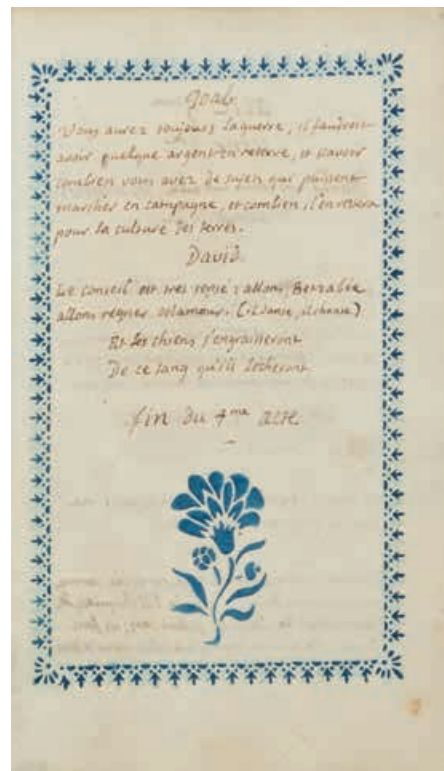 Joab.
Vous aurez toujours la guerre, il faudroit
avoir quelque argent en reserve, et scavoir
combien vous avez de sujets qui puissent
marcher en campagne, et combien il en restera
pour la culture des terres.
David.
Le conseil est tres sensé : allons, Betzabée
allons regner m'amour. (il danse, il chante)
Et les chiens s'engraisseront
De ce sang qu'ils lécheront
fin du 4me acte